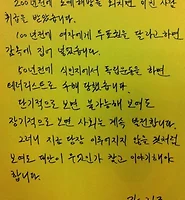 200년전에 노예해방을 외치면 미친 사람
취급을 받았습니다.
100년전에 여자에게 투표권을 달라고하면
감옥에 집어 넣었습니다.
50년전에 식민지에서 독립운동을 하면
테러리스트로 수배 당했습니다.
단기적으로 보면 불가능해 보여도
장기적으로 보면 사회는 계속 발전합니다.
그러니 지금 당장 이루어지지 않을 것처럼
보여도 대안이 무엇인가 찾고 이야기해야
합니다.